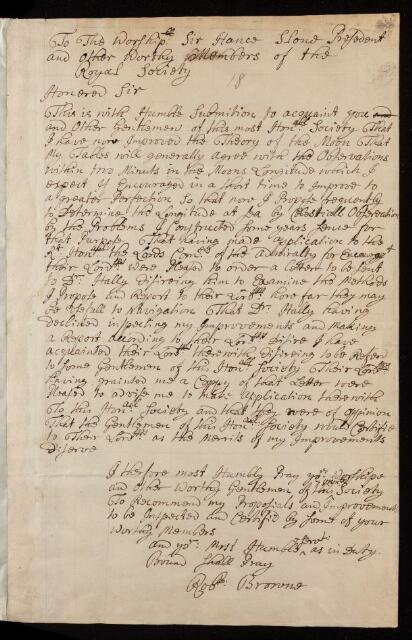 To The Worship.ll Sir Hance Slone President
and other Worthy Members of the
Royal Society
18
Honered Sir
This is with Humble Submition to acquaint you and
and Other Gentlemen of this most Hon.ble Society That
I have now Improved the Theory of the Moon That
My Tables will generally agree with the Observations
within two Minuts in the Moons Longitude which I
expect If Encouraged in a short time to Improve to
a greater Perfection So that now I Propose frequently
to Determine the Longitude at Sea by Celestiall Observations
by the Problems I Constructed some years since for
that Purpose That having made application to the
R.t Hon.ble the Lords Com.rs of the Admiralty for Encouragm.t
their Lord.pps were Pleased to order a Letter to be sent
to D.r Hally Disireing him to Examine the Methods
I Propose and Report to their Lord.pps how far they may
be Usefull to Navigation That D.r Hally having
declined inspecting my Improvements and Making
a Report acording to their Lord.pps Disire I have
acquainted their Lord.pps therewith Disireing to be Refered
to some Gentlemen of this Hon.ble Society Their Lord.pps
having grainted me a Coppy of that Letter were
Pleased to advise me to make application therewith
To this Hon.ble Society and that they were of oppinion
That the Gentlemen of this Hon.ble Society would Certifie
to Their Lord.pps as the Merits of my Improvements
Diserve
I therfore most Humbly Pray yo.r Worships
and other Worthy Gentlemen of this Society
To Recommend my Proposals and Improvements
to be Inspected and Certifid by some of your
Worthy Members
and yo.r Most Humble Serv.t as in Duty
Bound Shall Pray
Rob.t Browne